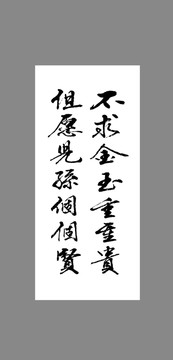 不求金玉重重貴
但愿兒孫個個賢